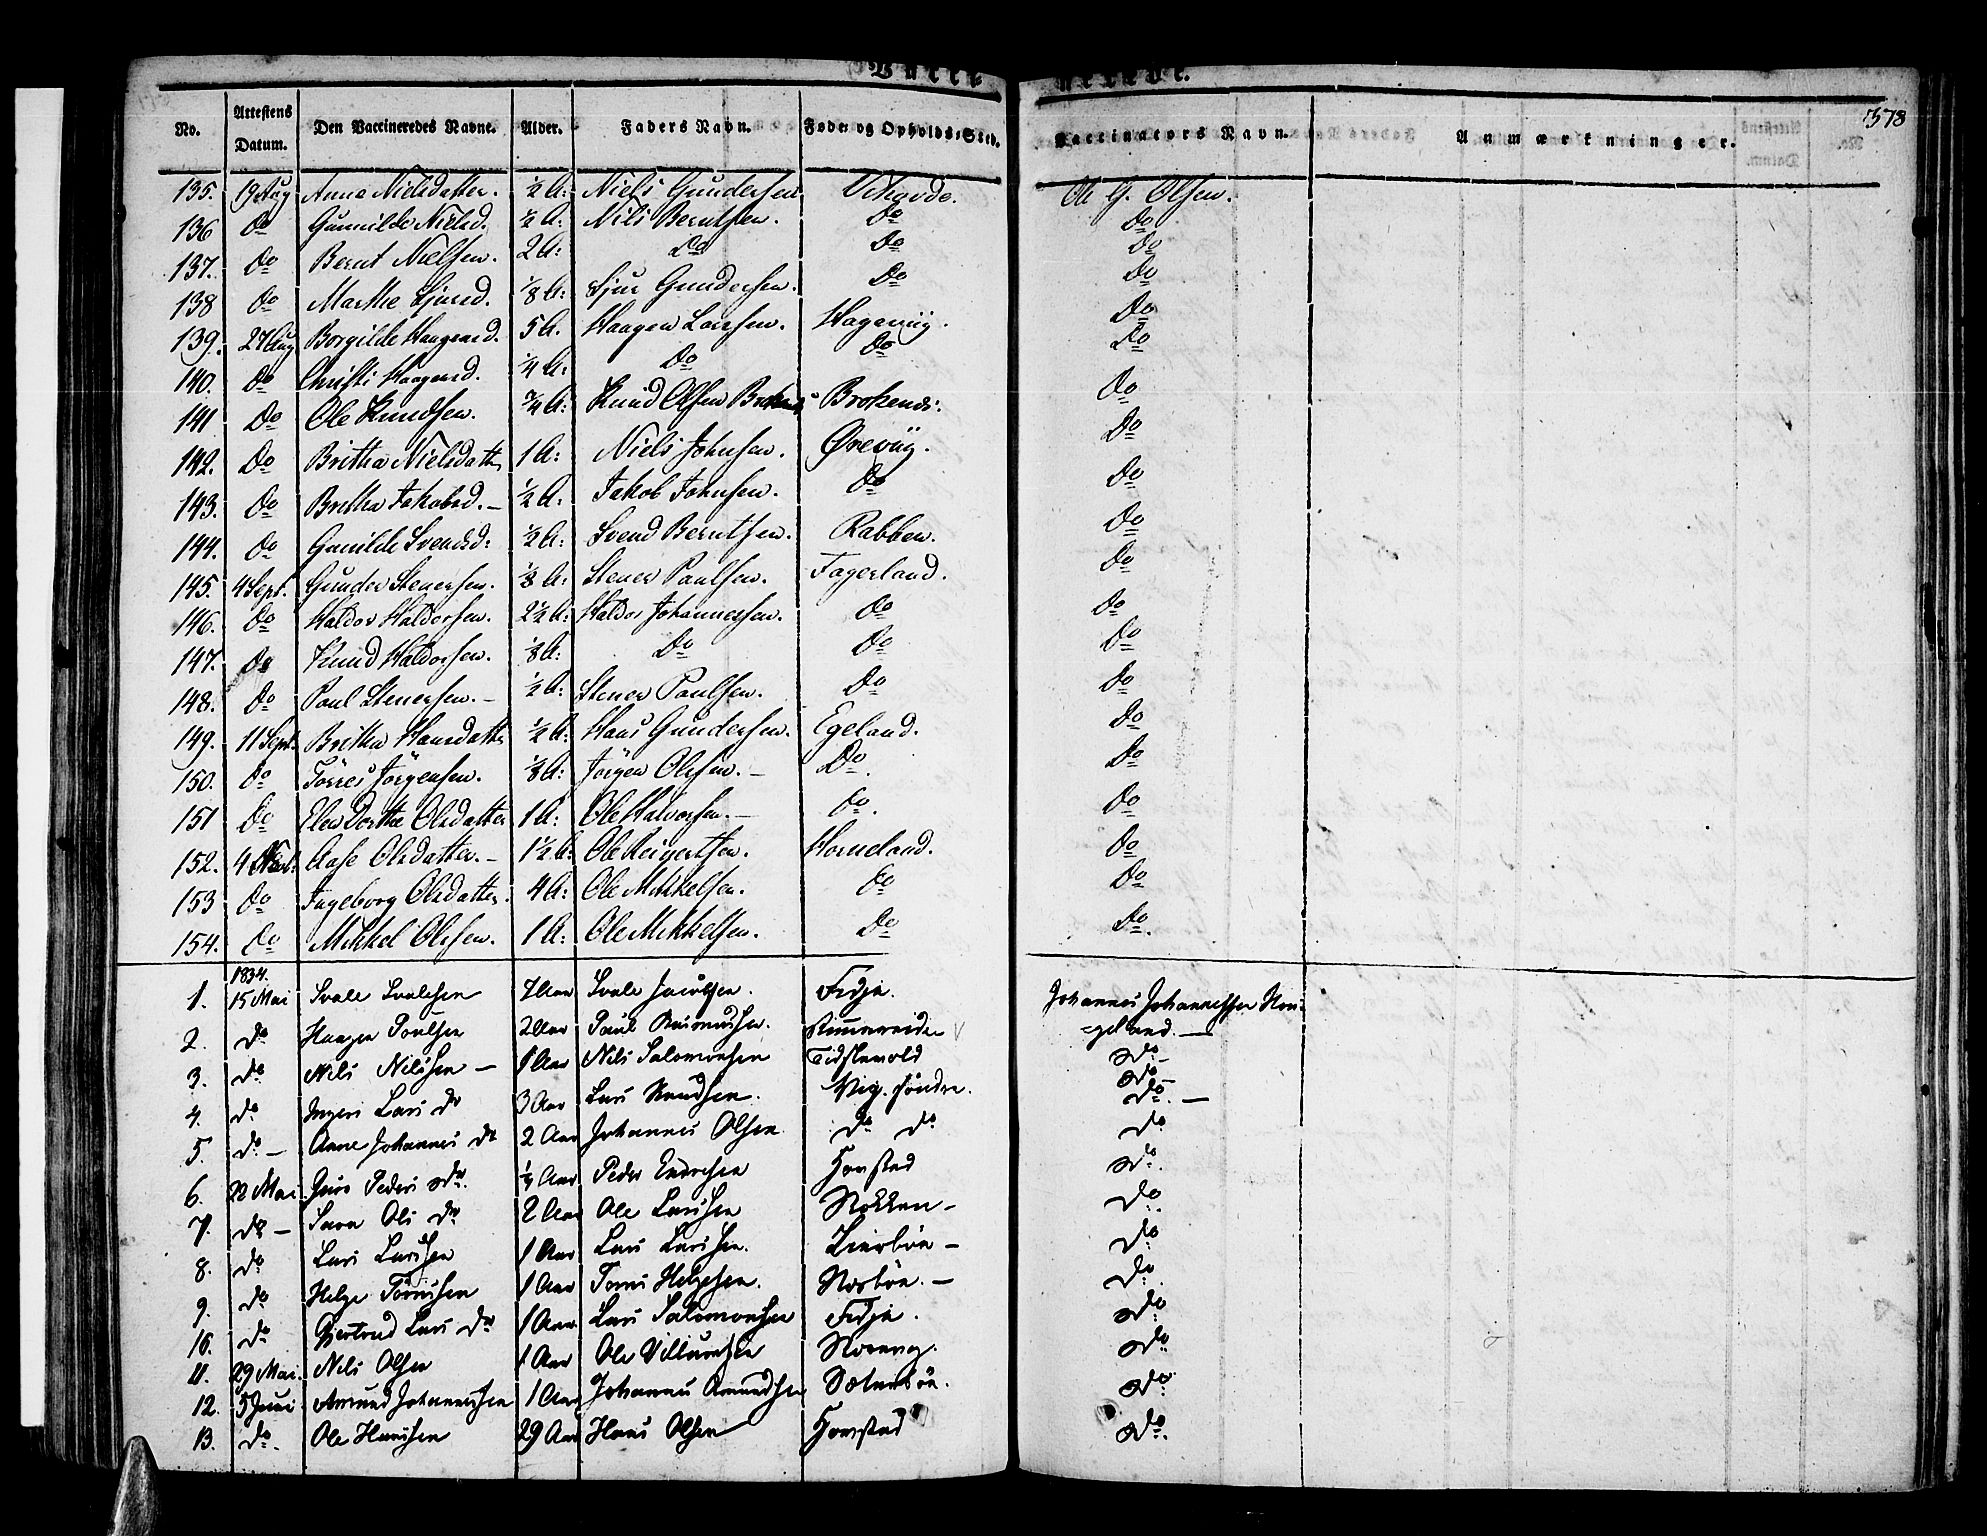 Vacci nerede.
578
No. Attestens Datum. Den Vaccineredes Navne. Alder. Faders Navn. Føde- og Opholds-Sted. Vaccinators Navn. Anmærkninger.
135. 19 Aug Anna Nielsdatter. ½ A: Niels Gundersen Vihavde. Ole G. Olsen.
136 Do Gunnilde Nielsd. ½ A: Nils Berntsen. Do Do
137. Do Bernt Nielsen. 2 A: Do Do Do
138 Do Marthe Sjursd. ⅛ A: Sjur Gundersen. Do Do
139. 27 Aug Borgilde Haagensd. 5 A. Haagen Larssen. Hageviig. Do
140. Do Christi Haagensd. ¼ A: Do Do Do
141 Do Ole Knudsen. ¾ A: Knud Olsen Brokends: Do
142. Do Britha Nielsdatter 1 A: Niels Johnsen. Øreviig. Do
143. Do Britha Jakobsd. - ½ A: Jakob Johnsen. Do Do
144. Do Gunilde Svendsd: ½ A: Svend Berntsen. Rabben. Do
145. 4 Sept. Gunder Stenersen. ⅛ A: Stener Paulsen. Fagerland. Do
146. Do Haldor Haldorsen. 2½ A: Haldor Johannessen. Do Do
147. Do Knud Haldorsen. ⅛ A: Do Do Do
148. Do Paul Stenersen. - ½ A: Stener Paulsen. Do Do
149. 11 Sept. Britha Hansdatter ½ A: Hans Gundersen. Egeland. Do
150. Do Törres Jörgensen. ⅛ A: Jörgen Olssen. - Do. Do
151 Do Elen Dorthe Olsdatter 1 A: Ole Halvorsen. - Do. Do
152. 4 Aase Olsdatter. - 1½ A. Ole Reigertsen. Horneland. Do
153 Do Ingeborg Olsdatter. 4 A: Ole Mikkelsen. Do Do
154. Do Mikkel Olssen. 1 A: Ole Mikkelsen. Do Do.
1834.
1. 15 Mai Svale Svalesen Aar Svale Jacobsen. Fidje. Johannes Johannessen Hou-
2. do Haagen Poulsen 2 Aar Paul Rasmussen. Stimareide =geland. -
3. do Nils Nilssen - 1 Aar Nils Salomonsen Tidskevold do -
4. do Inger Lars dr 3 Aar Lars Knudsen. Vig. søndre. do -
5. do - Anne Johannes dr 2 Aar Johannes Olsen do do do
6. 22 Mai Peders dr. ¼ Aar Peder Endresen Homstad do.
7. do - Sara Ols dr 2 Aar Ole Larssen Nokken - do
8. do Lars Larssen 1 Aar Lars Larssen. Lierbön - do
9. do Helge Törrissen 1 Aar Torris Helgesen. Norbön. - do
10. do Gjertrud Lars dr 1 Aar Lars Salomonsen Fidje. do
11. 29 Mai. Nils Olsen 1 Aar Ole Villumsen do
12. 5 Juni Amund Johannessen 1 Aar Johannes Amundsen Sætersbön. do
13. do. Ole Hanssen 29 Aar Hans Olsen Homstad do.